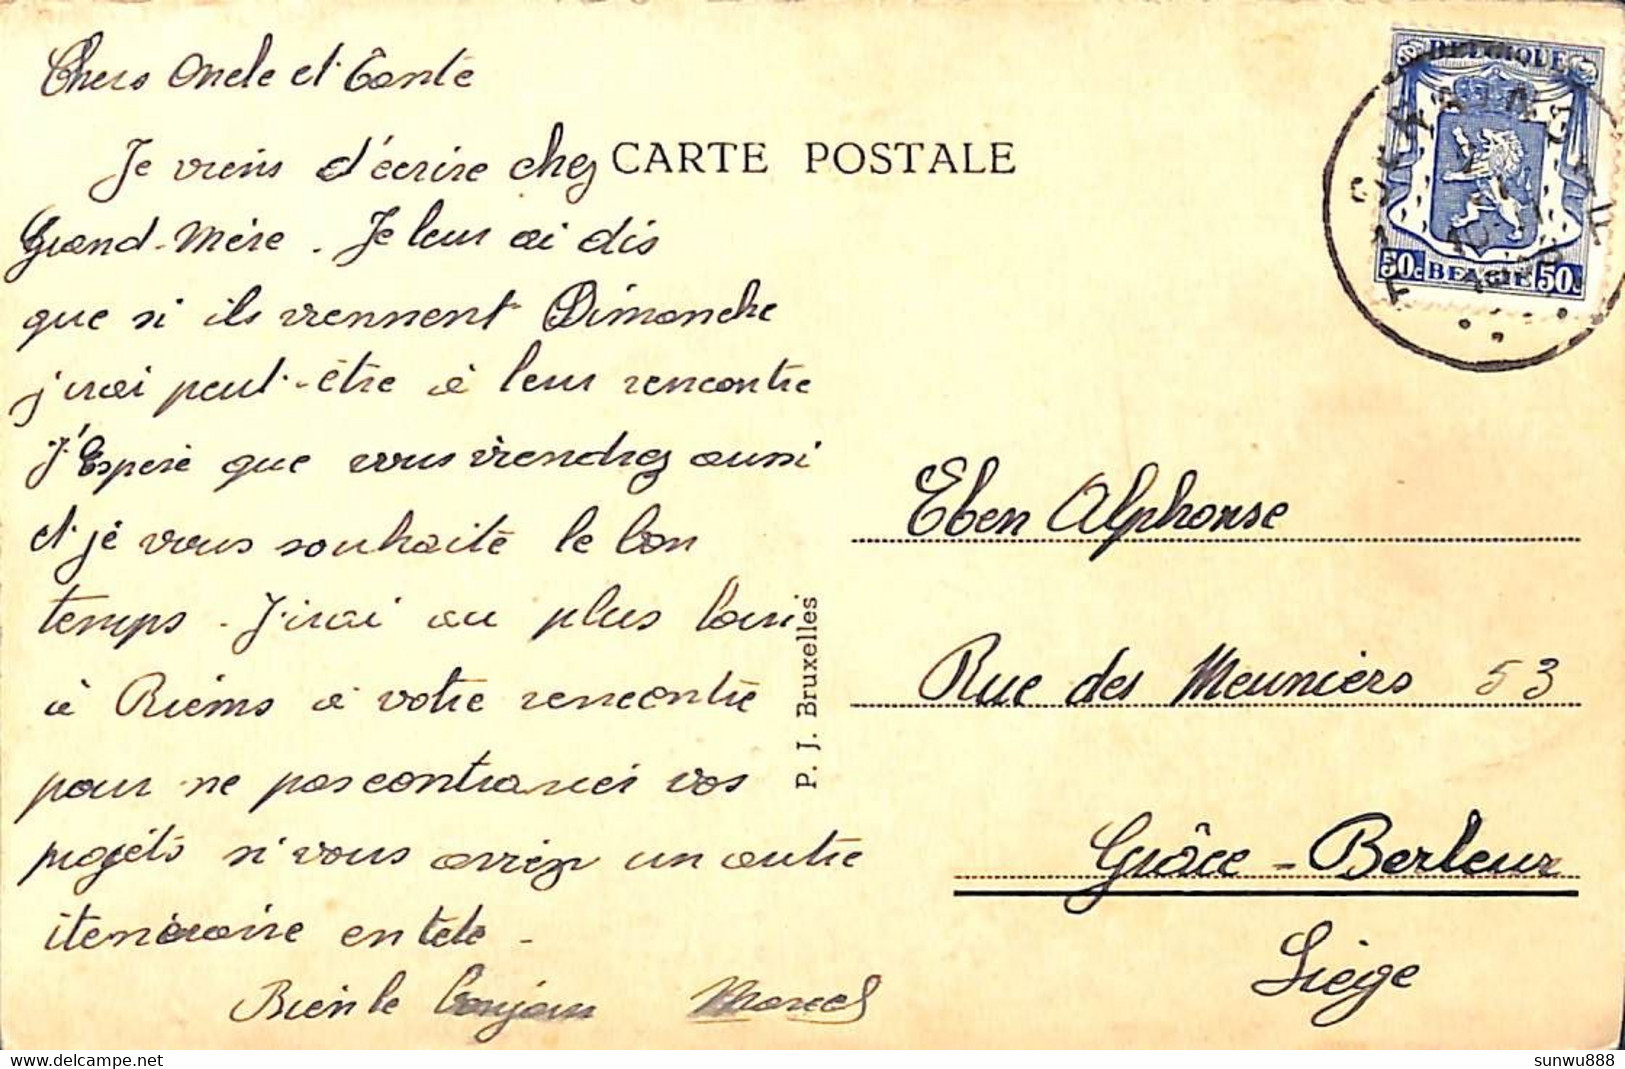 Chers Oncle et Tante
Je viens d'écrire chez
Grand-Mère. Je leur ai dis
que si ils viennent Dimanche
j'irai peut-être à leur rencontre
J'Espère que vous viendrez aussi
et je vous souhaite le bon
temps. J'irai au plus loin
à Riems à votre rencontre
pour ne pas contrarier vos
projets si vous avriez un autre
itenéraire en tete -
Bien le bonjour Marcel
CARTE POSTALE
P. J. Bruxelles
BELGIQUE
50c BELGIE 50c
Eben Alphonse
Rue des Meuniers 53
Grâce-Berleur
Liège
sunwu888